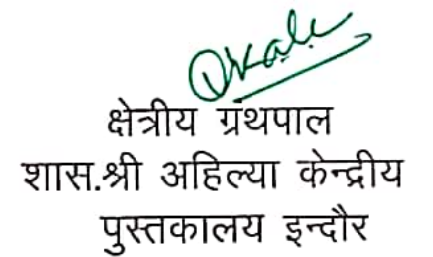 क्षेत्रीय ग्रंथपाल
शास.श्री अहिल्या केन्द्रीय
पुस्तकालय इन्दौर